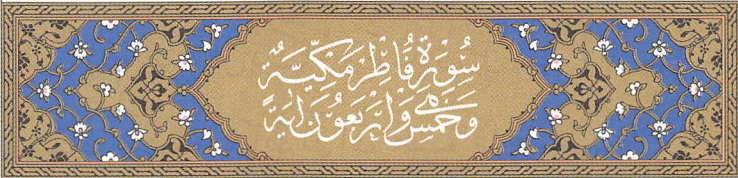 سُورَةُ فَاطِرٍ مَكِّيَّةٌ
وَخَمْسٌ وَأَرْبَعُونَ آيَةً